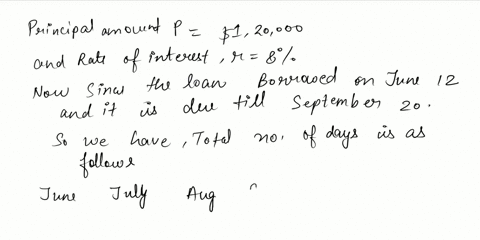 Principal amount P = $1,20,000
and Rate of interest, r = 8%
Now Sinse the loan Borrowed on June 12
and it is due till September 20.
So we have, Total no. of days is as
follows
June July Aug